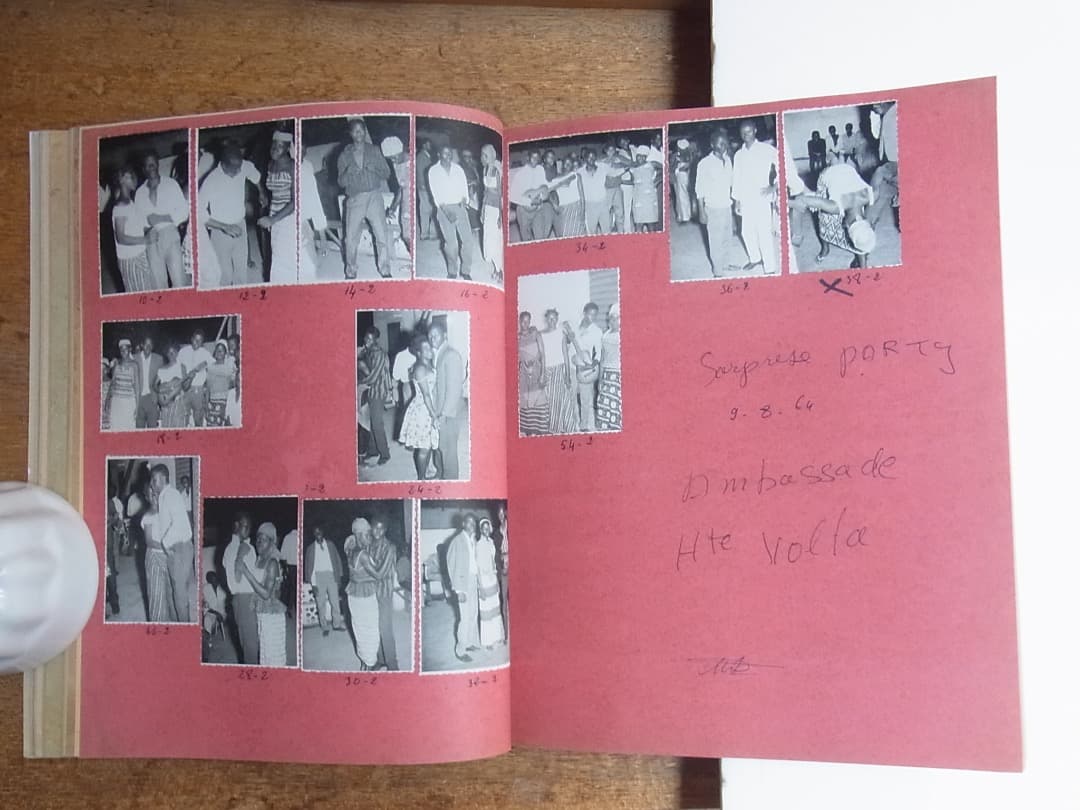 10-2
12-2
14-2
16-2
18-2
24-2
28-2
30-2
34-2
36-2
X 38-2
54-2
Surprese PARTy
9-8-64
Ambassade
Hte Volta